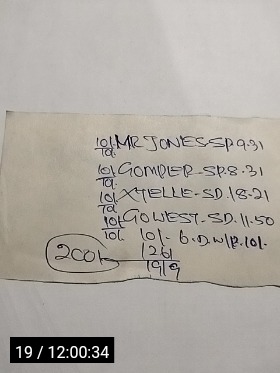 10/- MR JONES-SP.9-31
10/- GOMPER-SP.8.31
10/- XYELLE-SD.18-21
10/- GO WEST-SD.11.50
10/- 10/- 6.D.W/P.10/-
200/- 126/
19/9
19 / 12:00:34